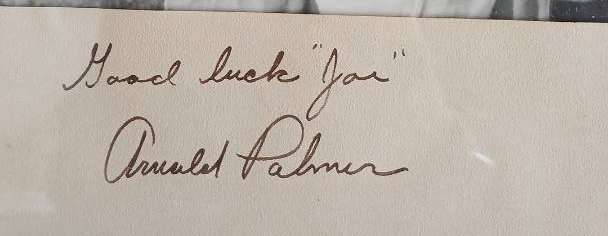 Good luck "Joe"
Arnold Palmer